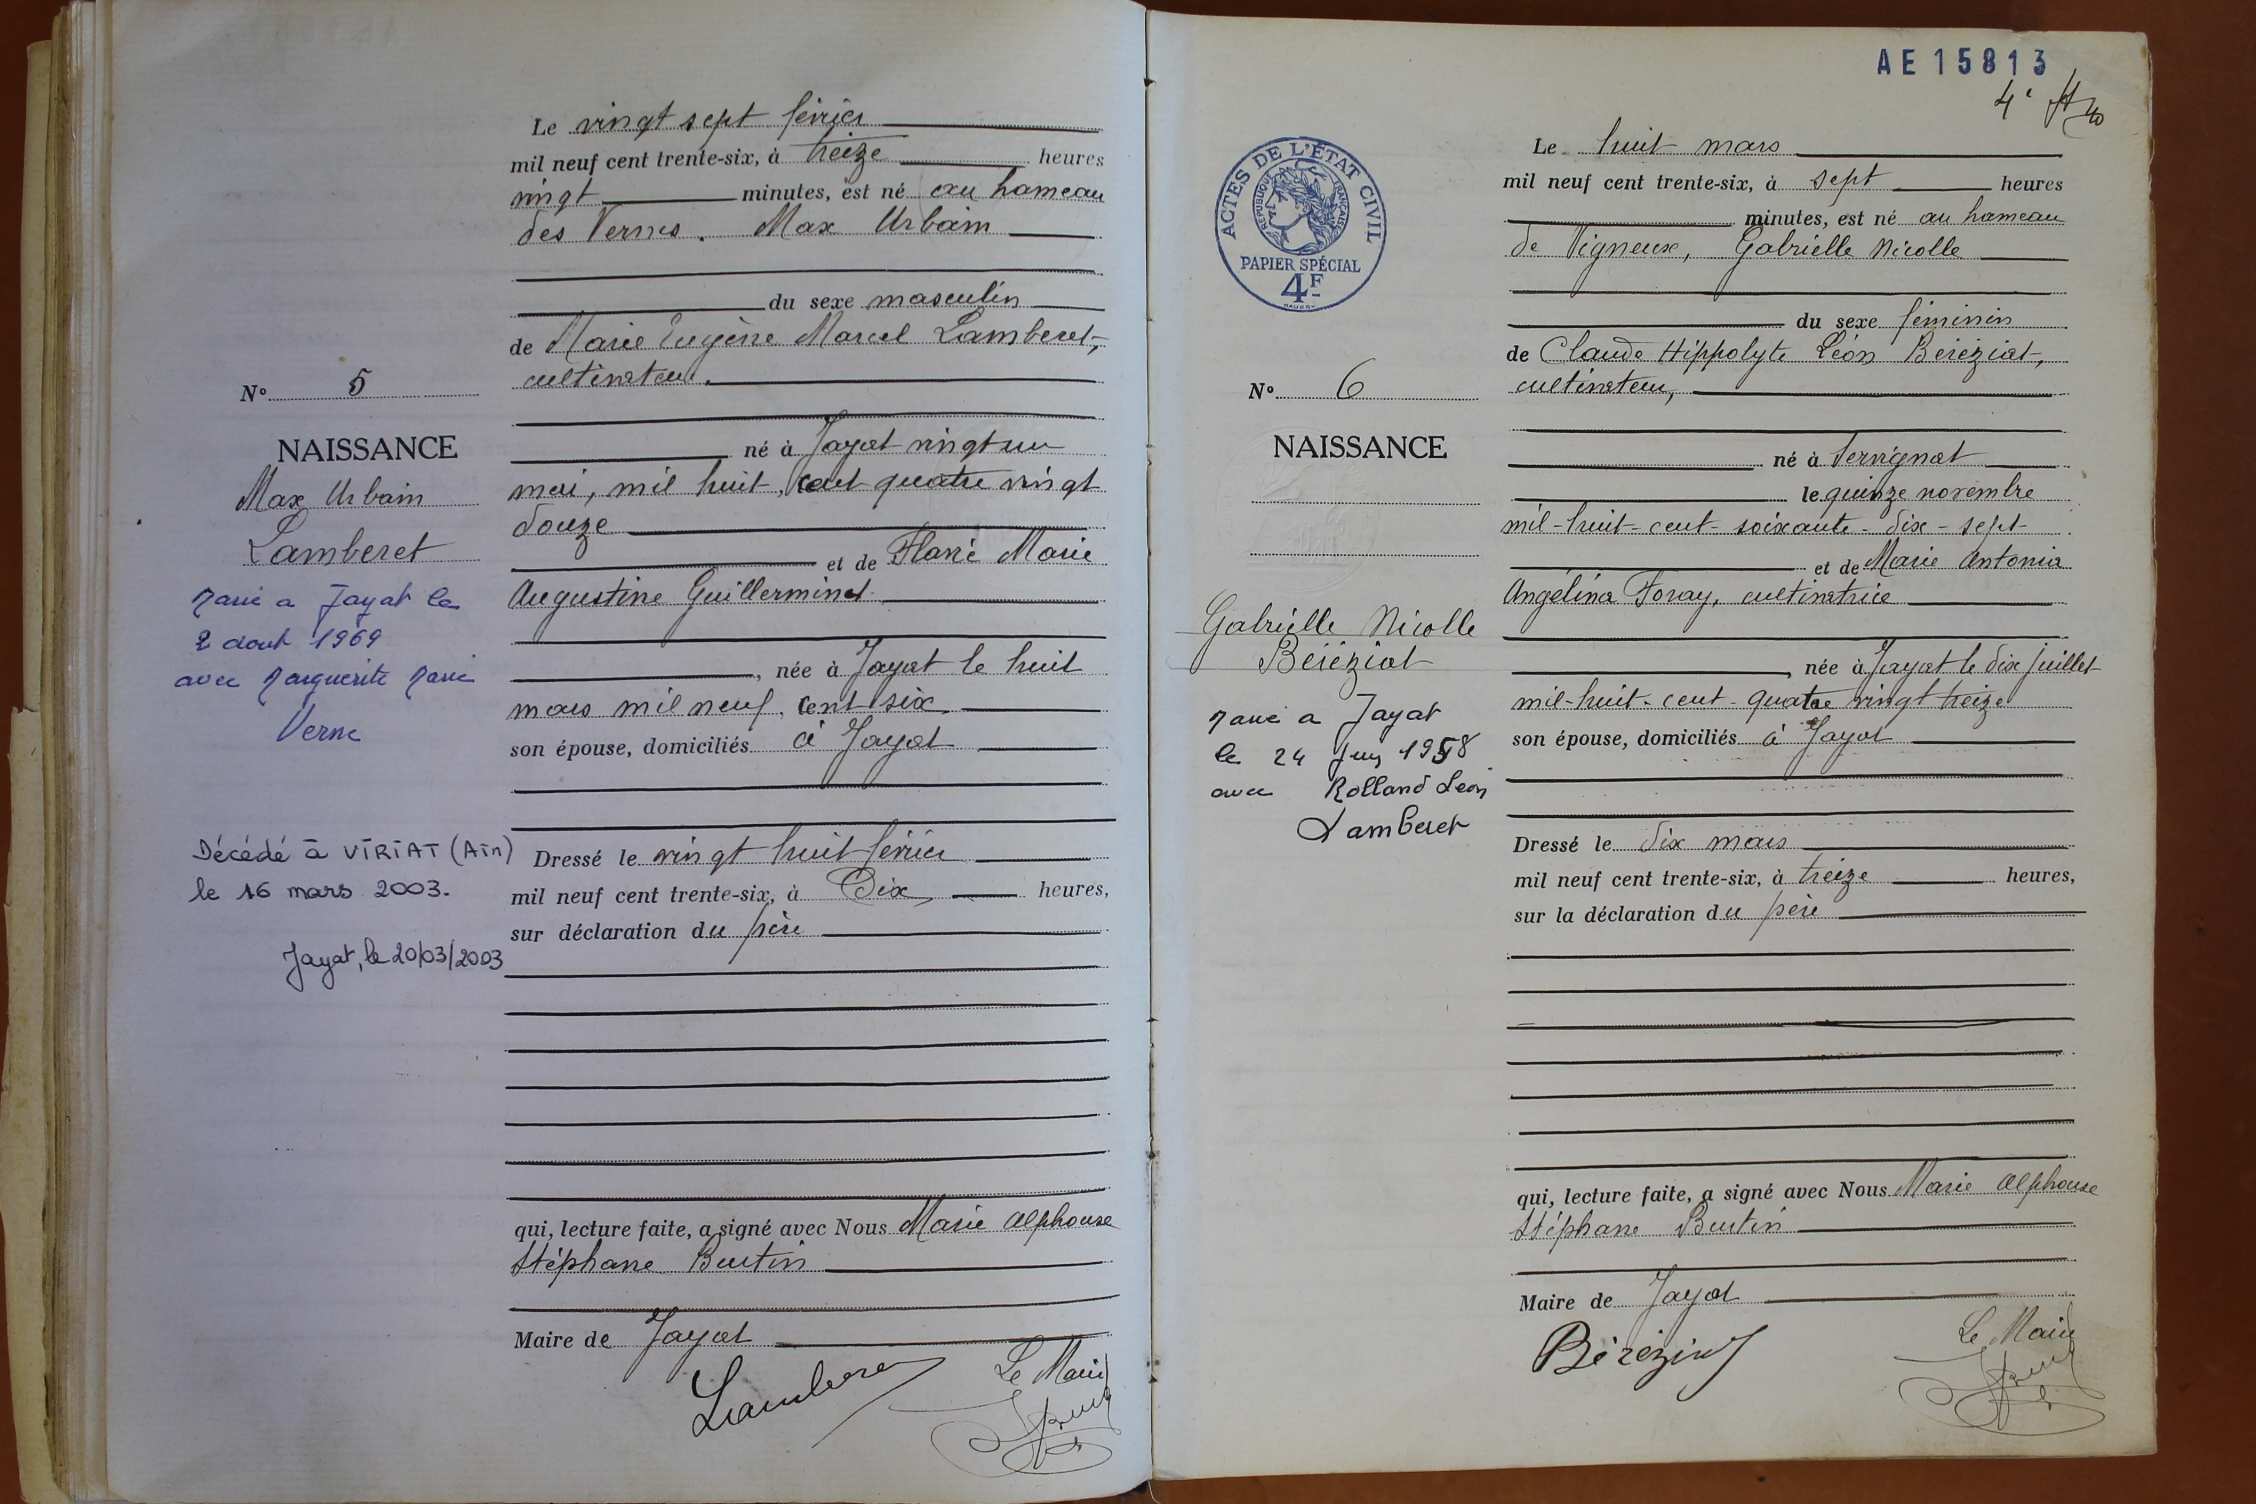 Le vingt sept février
mil neuf cent trente-six, à treize heures
vingt minutes, est né au hameau
des Vernes. Max Urbain
du sexe masculin
de Marie Eugène Marcel Lamberet,
cultivateur.
né à Jayat vingt un
mai, mil huit, cent quatre vingt
douze
et de Marie
Augustine Guillerminet
, née à Jayat le huit
mars mil neuf, cent six
son épouse, domiciliés à Jayat
Dressé le vingt huit février
mil neuf cent trente-six, à Dix heures,
sur déclaration du père
qui, lecture faite, a signé avec Nous Marie Alphonse
Stéphane Burtin
Maire de Jayat
Lamberet
Le Maire
N° 5
NAISSANCE
Max Urbain
Lamberet
Marié a Jayat le
2 aout 1969
avec Marguerite Marie
Verne
Décédé à VIRIAT (Ain)
le 16 mars 2003.
Jayat, le 20/03/2003
AE15813
ACTES DE L'ÉTAT CIVIL
RÉPUBLIQUE FRANÇAISE
PAPIER SPÉCIAL
4F
N° 6
NAISSANCE
Gabrielle Nicolle
Béréziat
Mariée a Jayat
le 24 Juin 1958
avec Rolland Léon
Lamberet
Le huit mars
mil neuf cent trente-six, à sept heures
minutes, est né au hameau
de Vigneux, Gabrielle Nicolle
du sexe féminin
de Claude Hippolyte Léon Béréziat,
cultivateur,
né à Servignat
le quinze novembre
mil-huit-cent-soixante-dix-sept
et de Marie Antonia
Angélina Foray, cultivatrice
, née à Jayat le dix juillet
mil-huit-cent-quatre vingt treize
son épouse, domiciliés à Jayat
Dressé le dix mars
mil neuf cent trente-six, à treize heures,
sur la déclaration du père
qui, lecture faite, a signé avec Nous Marie Alphonse
Stéphane Burtin
Maire de Jayat
Béréziat
Le Maire